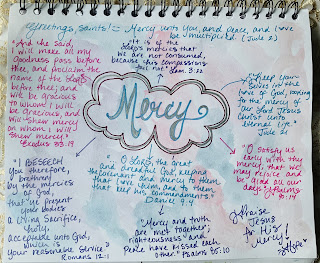 Greetings, saints! = Mercy unto you, and peace, and love
be multiplied. (Jude 2)
"And He said,
I will make all my
Goodness pass before
thee, and proclaim the
name of the LORD
before thee; and
will be gracious
to whom I will be
Gracious, and
will shew mercy
on whom I will
shew mercy."
Exodus 33:19
"It is of the
LORD's mercies that
we are not consumed,
because His compassions
fail not" Lam. 3:22
"Keep your
selves in the
love of God, looking
for the mercy of
our Lord Jesus
Christ unto
Eternal life."
Jude 21
Mercy
"O satisfy us
early with thy
mercy; that we
may rejoice and
be glad all our
days." Psalms 90:14
"I BESEECH
you therefore,
brethren,
by the mercies
of God,
that ye present
your bodies
a living sacrifice,
holy,
acceptable unto God,
which is
your reasonable service"
Romans 12:1
"O Lord, the great
and dreadful God, keeping
the covenant and mercy to them
that love him, and to them
that keep his commandments."
Daniel 9:4
"Mercy and truth
are met together;
righteousness and
Peace have kissed each
other." Psalms 85:10
Praise
Jesus
for His
Mercy!
Hope